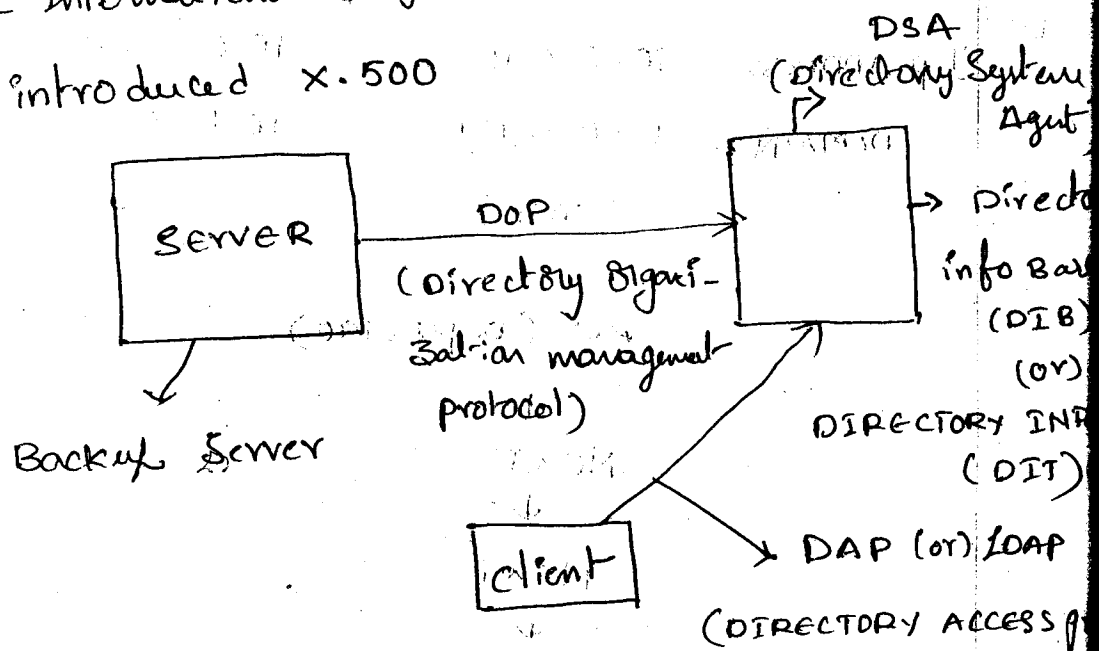 introduced X.500
DSA
(Directory System
Agent
SERVER
DOP
(Directory Organi-
zation management
protocol)
Backup Server
info
(DIB)
(or)
DIRECTORY
(DIT)
client
DAP (or) LDAP
(DIRECTORY ACCESS